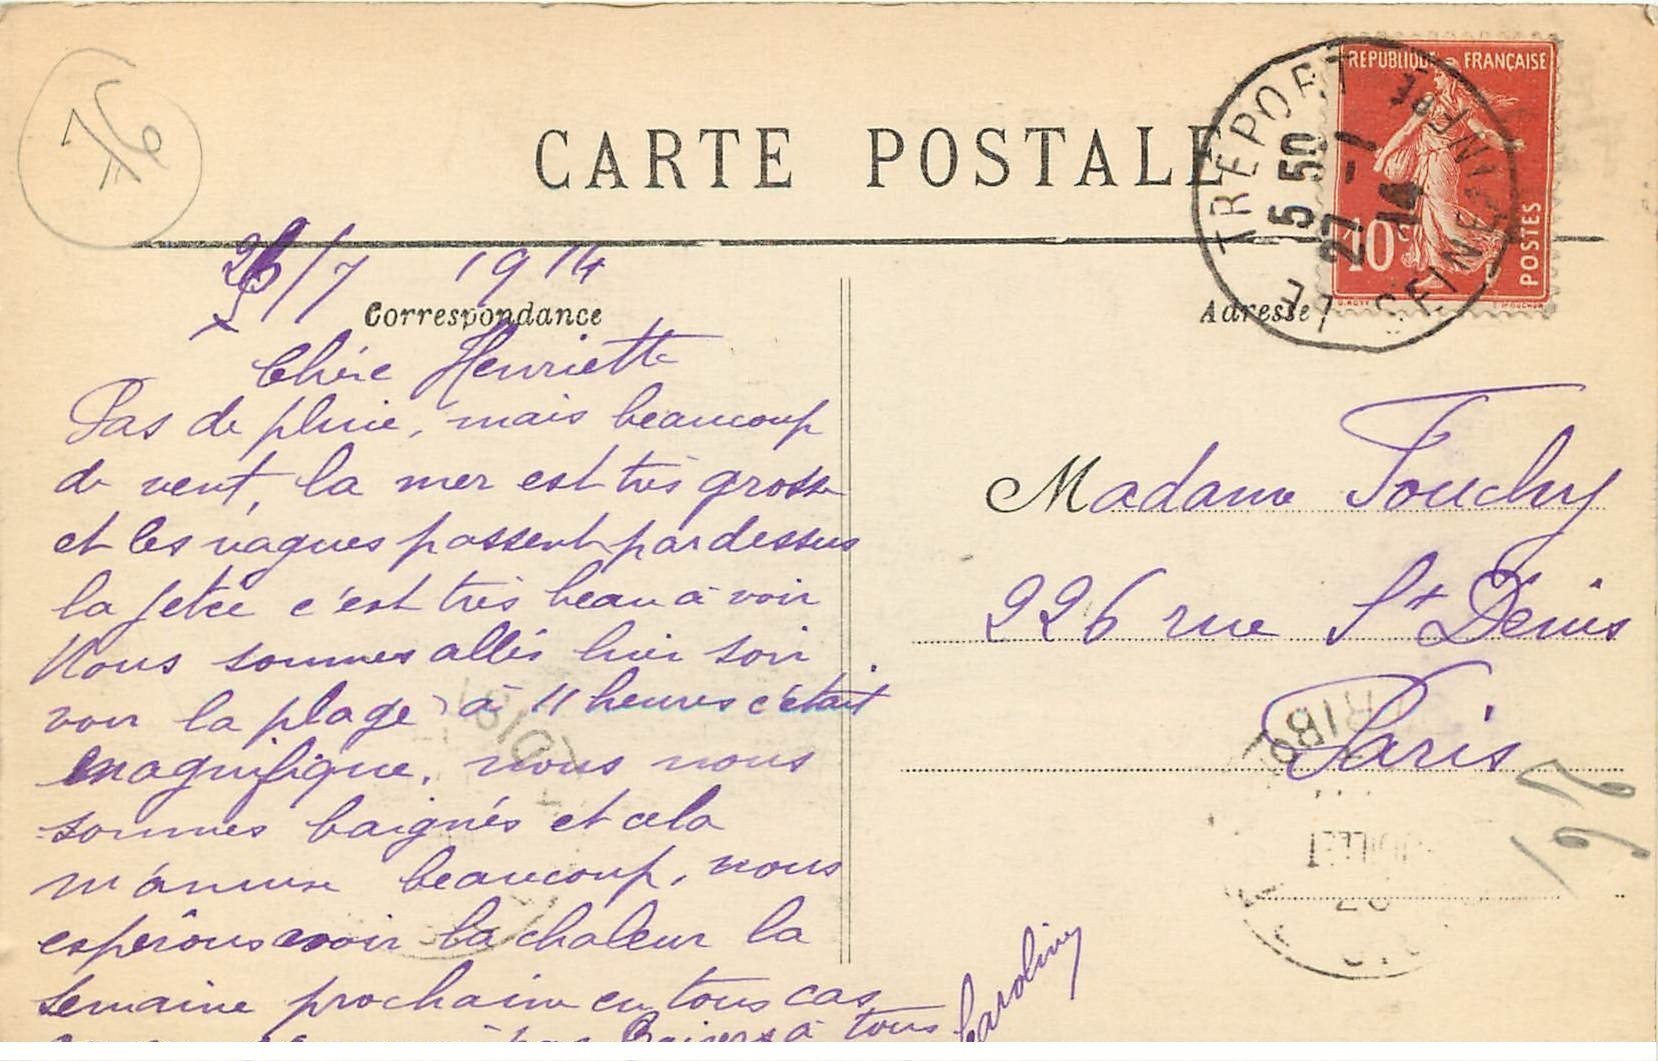 76
CARTE POSTALE
REPUBLIQUE FRANÇAISE
10
POSTES
LE TREPORT
5 50
27 -7
14
SEINE INFRE
26/7 1914
Correspondance
Adresse
Chère Henriette
Pas de pluie, mais beaucoup
de vent, la mer est très grosse
et les vagues passent par dessus
la jetée c'est très beau à voir
Nous sommes allés hier soir
voir la plage à 11 heures c'était
magnifique, nous nous
sommes baignés et cela
m'amuse beaucoup, nous
espérons avoir la chaleur la
semaine prochaine en tous cas
pas Baisers à tous
Caroline
Madame Fouchy
226 rue St Denis
Paris